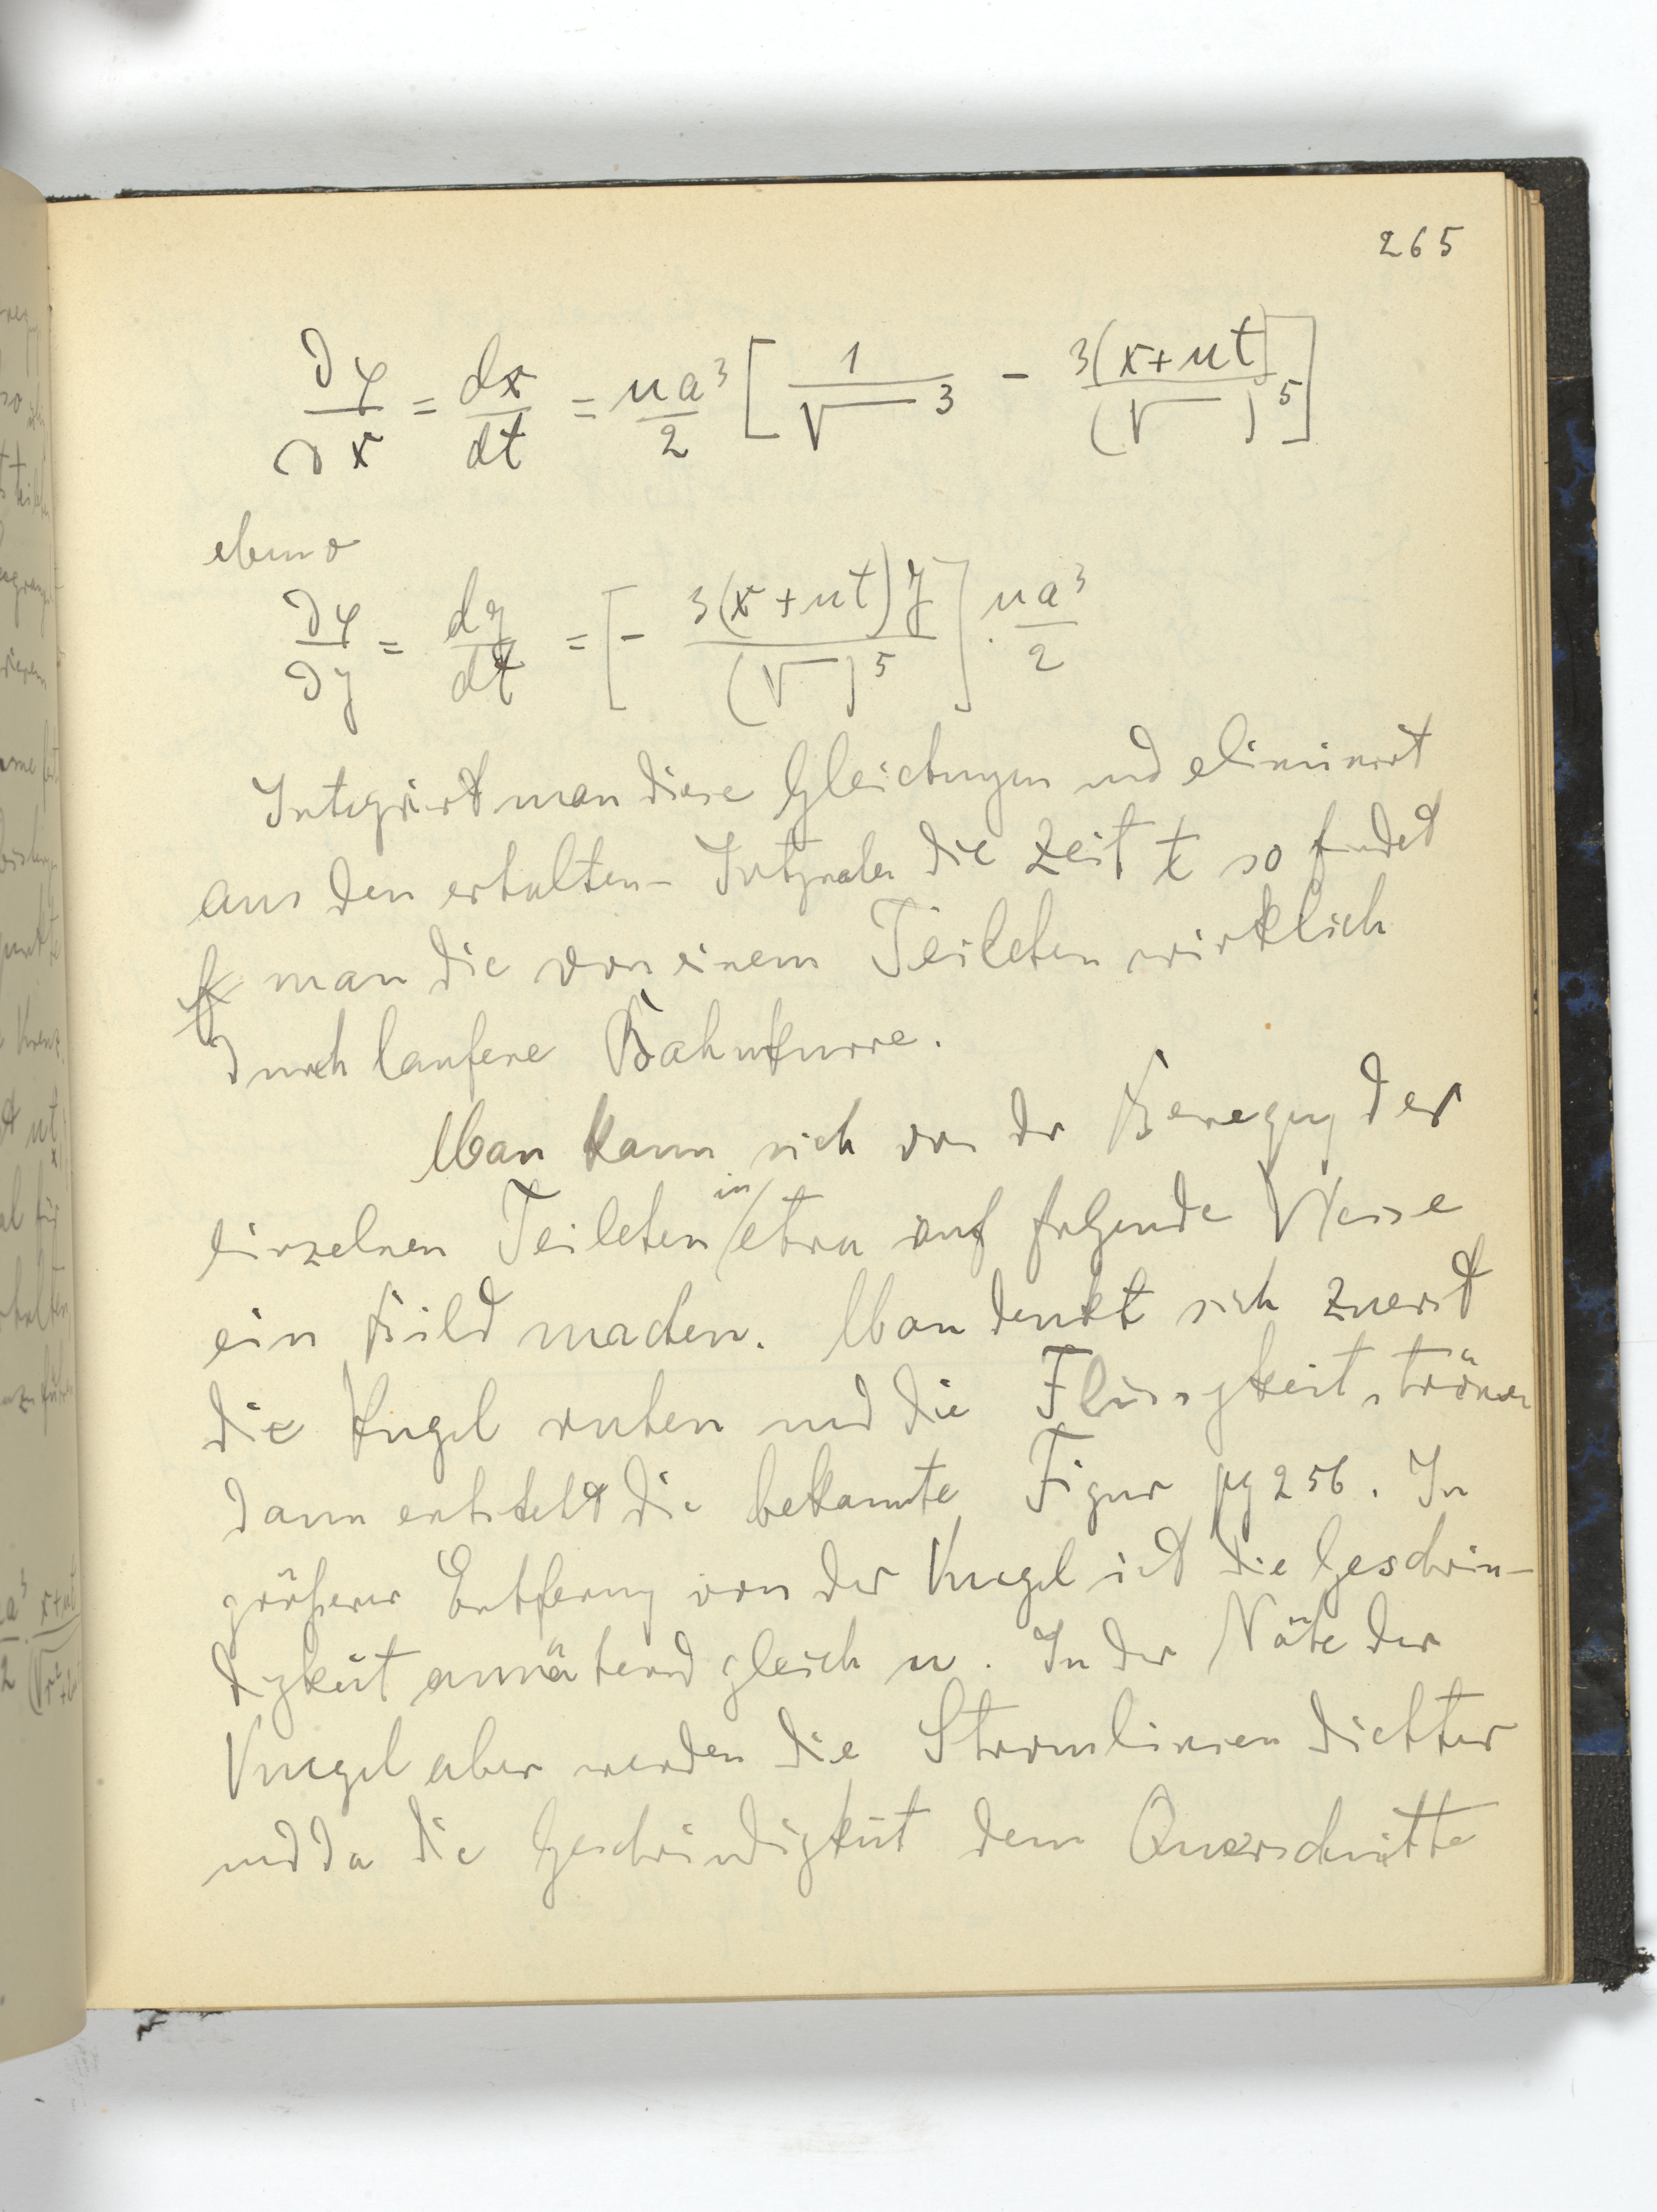 265
∂φ/∂x = dx/dt = ua³/2 [ 1/√‾‾³ − 3(x+ut)/(√‾‾)⁵ ]
ebenso
∂φ/∂y = dy/dt = [ − 3(x+ut)y/(√‾‾)⁵ ] · ua³/2
Integriert man diese Gleichungen und eliminiert
aus den erhaltenen Integralen die Zeit t so findet
man die von einem Teilchen wirklich
durchlaufene Bahnkurve.
Man kann sich von der Bewegung der
einzelnen Teilchen in etwa auf folgende Weise
ein Bild machen. Man denkt sich zuerst
die Kugel ruhen und die Flüssigkeit strömen
dann entsteht die bekannte Figur pg 256. In
größerer Entfernung von der Kugel ist die Geschwin-
digkeit annähernd gleich u. In der Nähe der
Kugel aber werden die Stromlinien dichter
und da die Geschwindigkeit dem Querschnitte